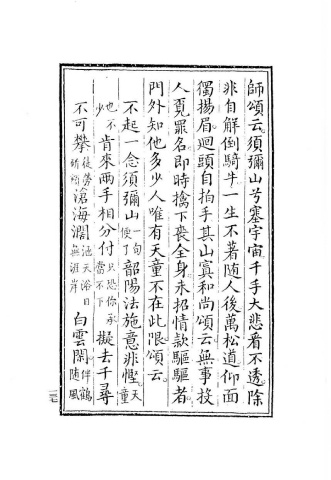 師頌云須彌山兮塞宇宙千手大悲看不透除
非自解倒騎牛一生不著隨人後萬松道仰面
獨揚眉迴頭自拍手其山寞和尚頌云無事投
人覓罪名即時擒下喪全身未招情款驅驅者
門外知他多少人唯有天童不在此限頌云
不起一念須彌山一句便了韶陽法施意非慳天童
也不少肯來兩手相分付只恐你承當不下擬去千尋
不可攀徒勞斫額滄海濶滔天浴日無涯岸白雲閑伴鶴隨風